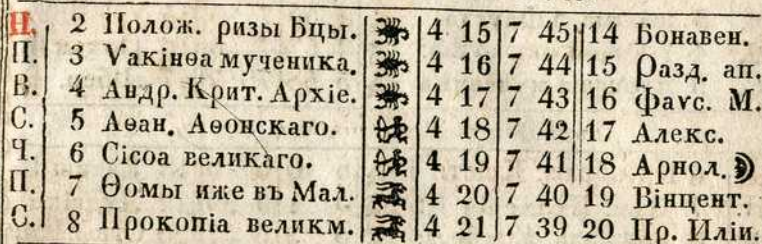 Н. 2 Полож. ризы Бцы. 4 15 7 45 14 Бонавен.
П. 3 Ѵакінѳа мученика. 4 16 7 44 15 Разд. ап.
В. 4 Андр. Крит. Архіе. 4 17 7 43 16 Фаѵс. М.
С. 5 Аѳан. Аѳонскаго. 4 18 7 42 17 Алекс.
Ч. 6 Сісоа великаго. 4 19 7 41 18 Арнол.
П. 7 Ѳомы иже въ Мал. 4 20 7 40 19 Вінцент.
С. 8 Прокопіа великм. 4 21 7 39 20 Пр. Иліи.